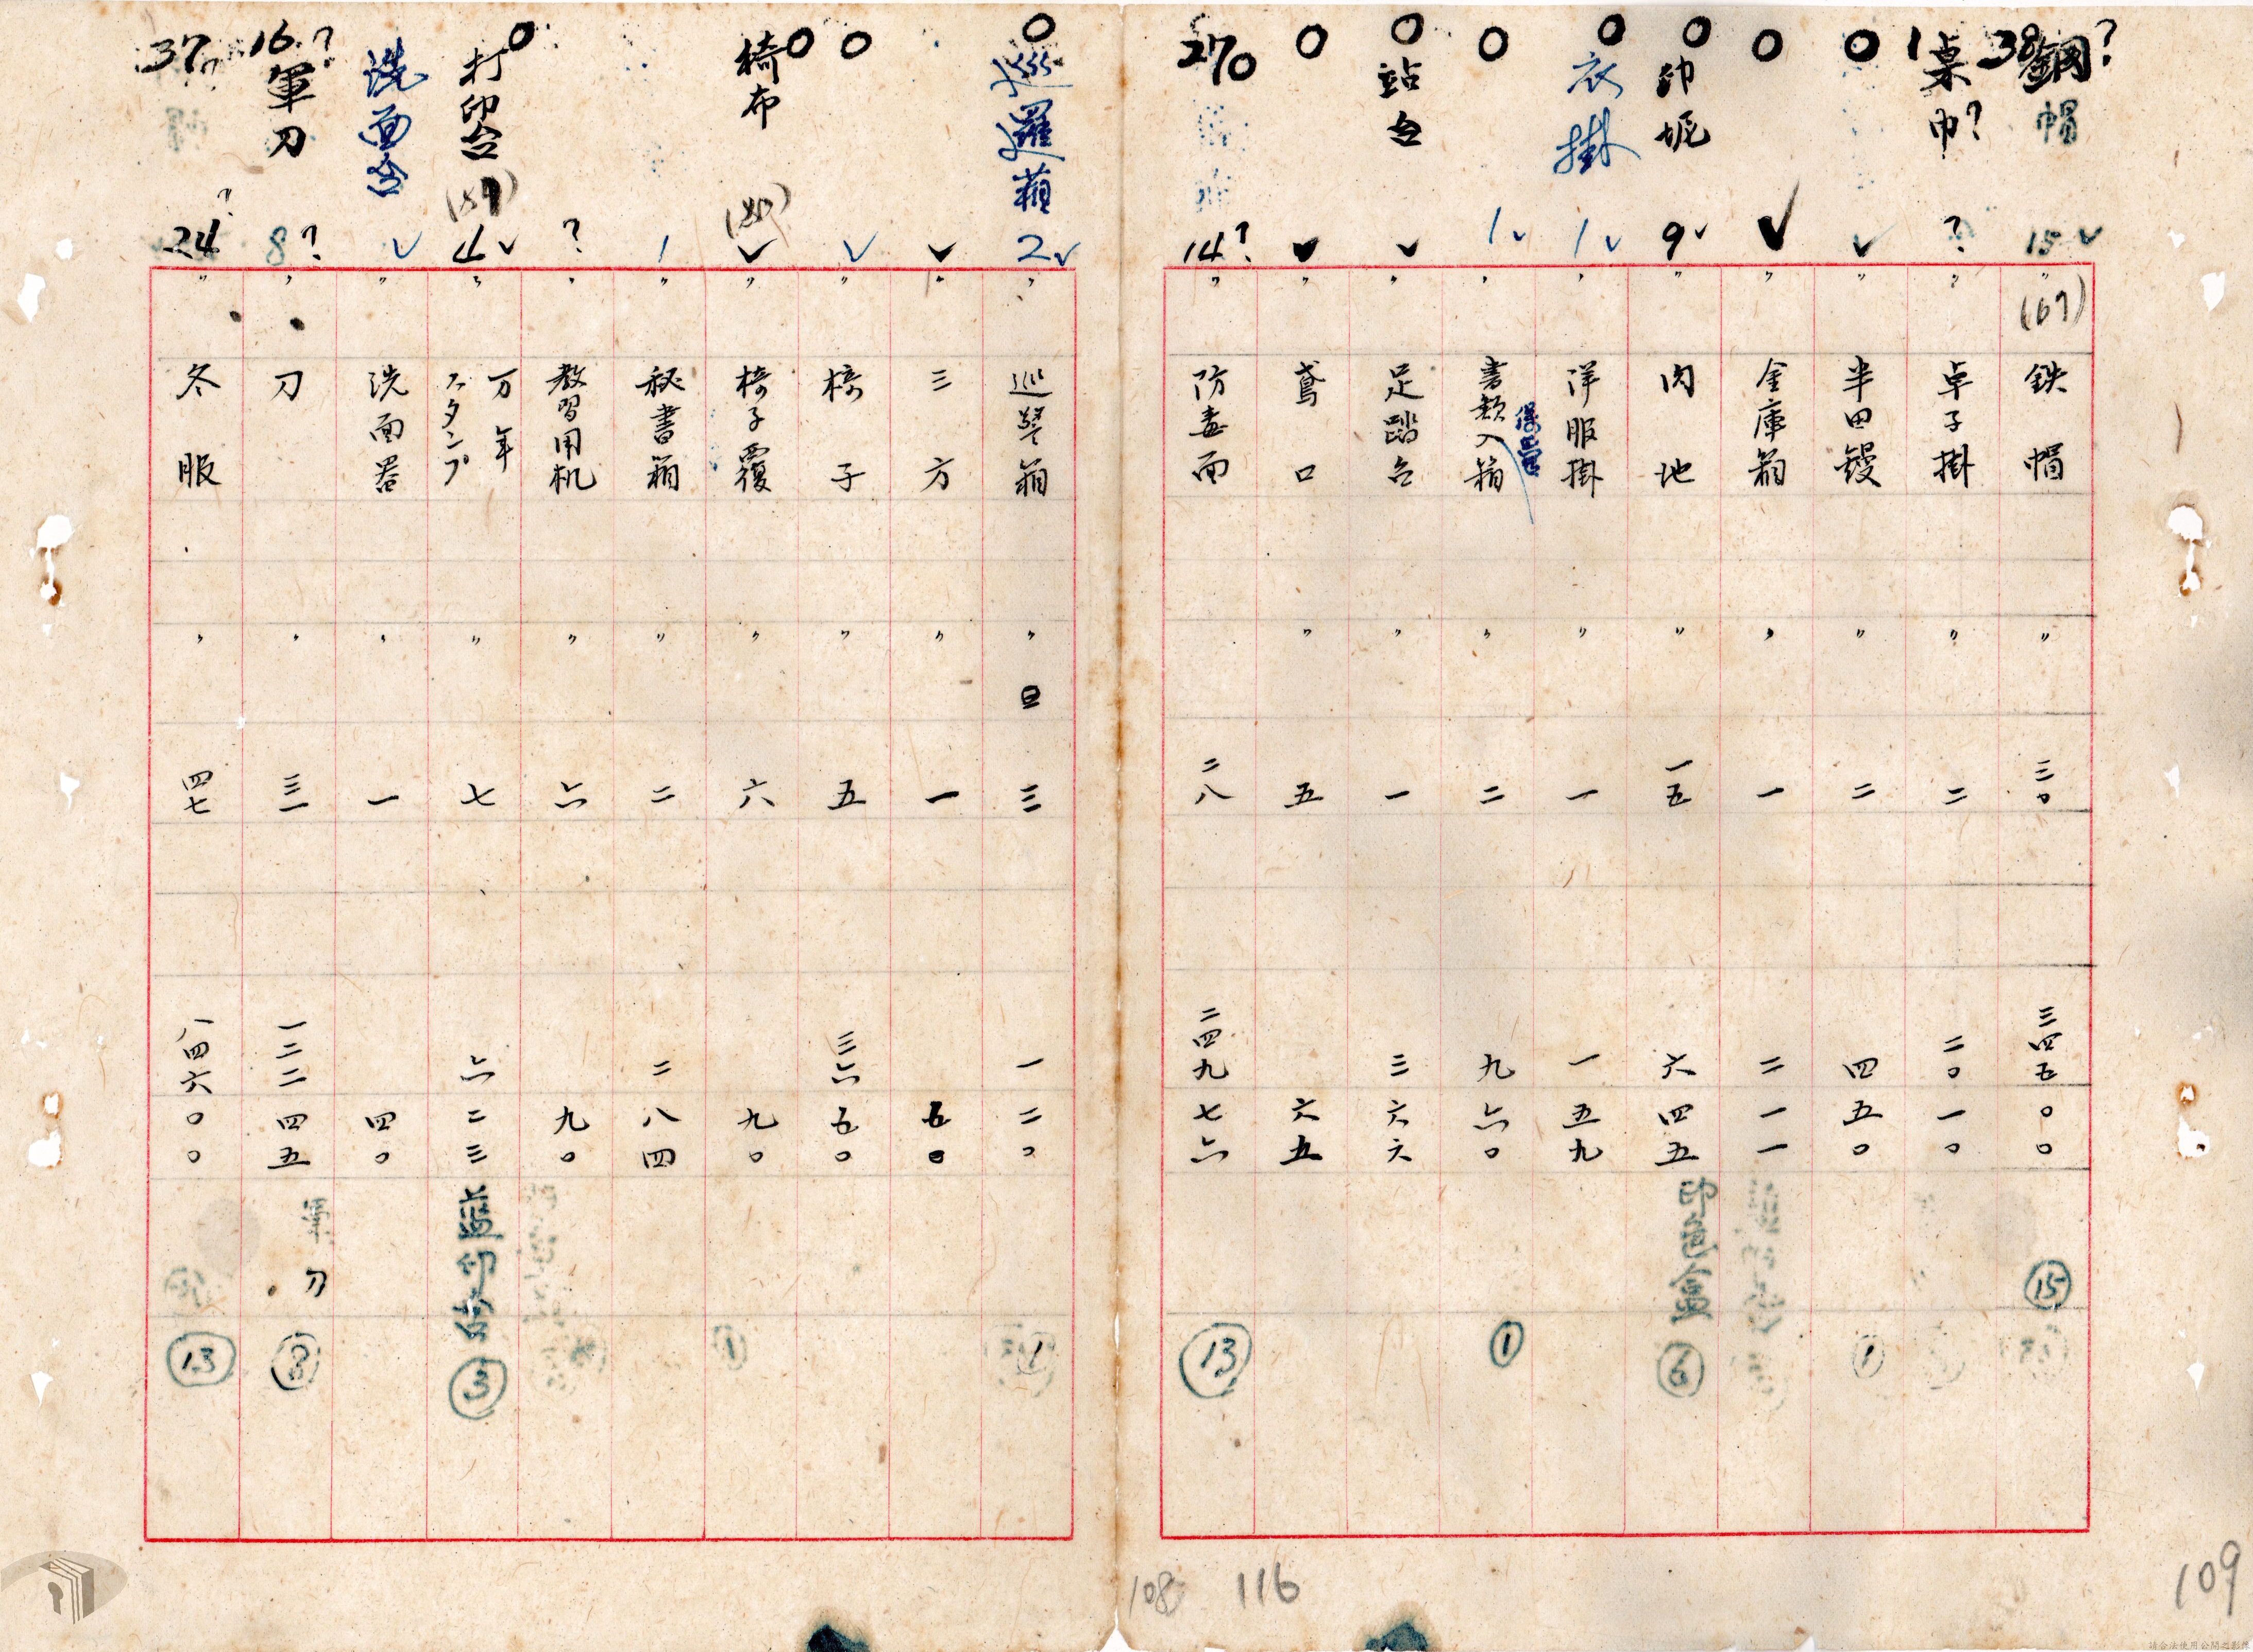 鋼帽
38 ?
15 ✓
〃
(67)
鉄帽
〃
三〇
三四五
〇〇
⑮
桌巾?
1
?
〃
卓子掛
〃
二
二〇
一〇
0
✓
〃
半田鏝
〃
二
四
五〇
①
0
✓
〃
金庫箱
〃
一
二
一一
0
印妮
9✓
〃
肉地
〃
一五
六
四五
⑥
0
衣掛
1✓
〃
洋服掛
〃
一
一
五九
0
1✓
〃
書類入箱
〃
二
九
六〇
①
0
站台
✓
〃
足踏台
〃
一
三
六六
0
✓
〃
鳶口
〃
五
六五
27 0
14?
〃
防毒面
二八
二四九
七六
⑬
0
巡邏箱
2✓
〃
巡警箱
〃
三
一
二〇
0
✓
〃
三方
〃
一
五〇
0
✓
〃
椅子
〃
五
三六
五〇
椅布
✓
〃
椅子覆
〃
六
九〇
①
1
〃
秘書箱
〃
二
二
八四
?
〃
教習用机
〃
六
九〇
0
打印台
4✓
〃
万年
スタンプ
〃
七
六
二三
③
洗面台
✓
〃
洗面器
〃
一
四〇
16 ?
軍刀
8?
〃
刀
〃
三一
一二二
四五
軍刀
⑧
37
?
24
〃
冬服
〃
四七
八四六
〇〇
⑬
108
116
109
請合法使用公開之影像